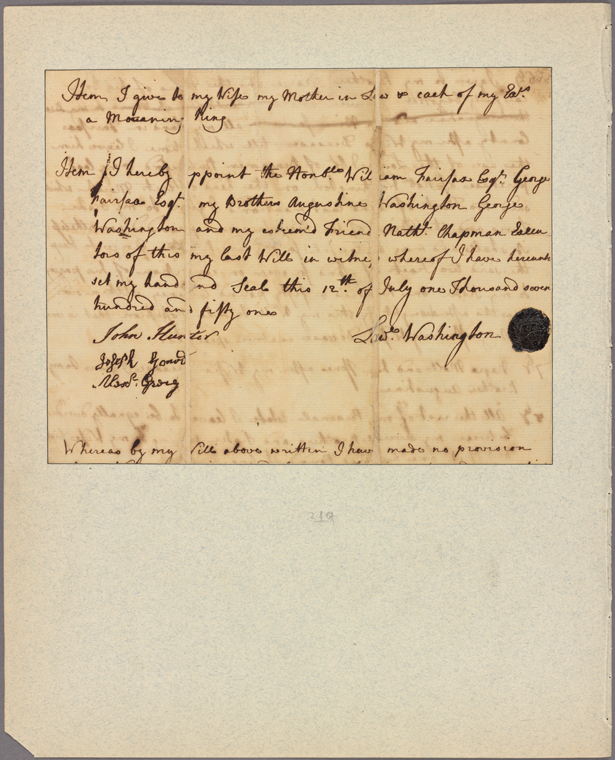 Item, I give to my Wife my Mother in Law & each of my Exrs.
a Mourning Ring
Item I hereby ppoint the Honble. Wil iam Fairfax Esqr. George
Fairfax Esqr. my Brothers Augustine Washington George
Washington and my esteem'd Friend Nathl. Chapman Execu
tors of this my last Will in witne, whereof I have hereunto
set my hand nd Seale this 12th. of July one Thousand seven
hundred and fifty one
John Hunter Lawce. Washington
Joseph
Alexr.
Whereas by my Will above written I have made no provision
219